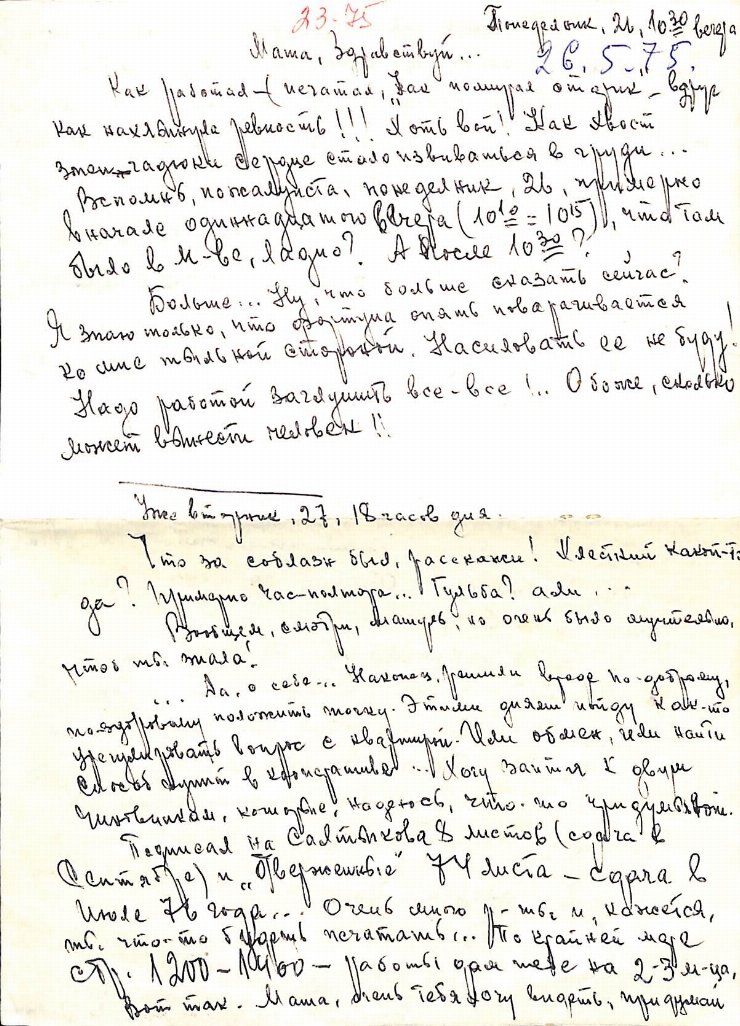 23-75
Понедельник, 26, 10 30 вечера
Маша, здравствуй...
26.5.75.
Как работал – (печатал, „Как помирал старик – вдруг
как нахлынула ревность!!! Хоть вой! Как хвост
змеи-гадюки сердце стало извиваться в груди...
Вспомнь, пожалуйста, понедельник, 26, примерно
в начале одиннадцатого вечера (10 10 = 10 15), что там
было в М-ве, ладно? А после 10 30?
Больше... Ну, что больше сказать сейчас?
Я знаю только, что фортуна опять поварачивается
ко мне тыльной стороной. Насиловать ее не буду!
Надо работой заглушить все-все!.. О боже, сколько
может вынести человек!!
Уже вторник, 27, 18 часов дня.
Что за соблазн был, расскажи! Хлесткий какой-то
да? Примерно час-полтора... Гульба? али ...
Вообщем, смотри, машуль, но очень было мучительно,
чтоб ты знала!
... Да, о себе... Наконец, решили вроде по-доброму,
по-здоровому положить точку. Этими днями пойду как-то
урегулировать вопрос с квартирой. Или обмен, или найти
способ купить в кооперативе... Хочу зайти к двум
чиновникам, которые, надеюсь, что-то придумывают.
Подписал на Салтыкова 8 листов (сдача в
сентябре) и „Отверженные" 74 листа – сдача в
июле 76 года... Очень много р-ты и, кажется,
ты что-то будешь печатать... По крайней мере
стр. 1200–1400 – работы одам тебе на 2-3 м-ца,
Вот так. Маша, очень тебя хочу видеть, придумай